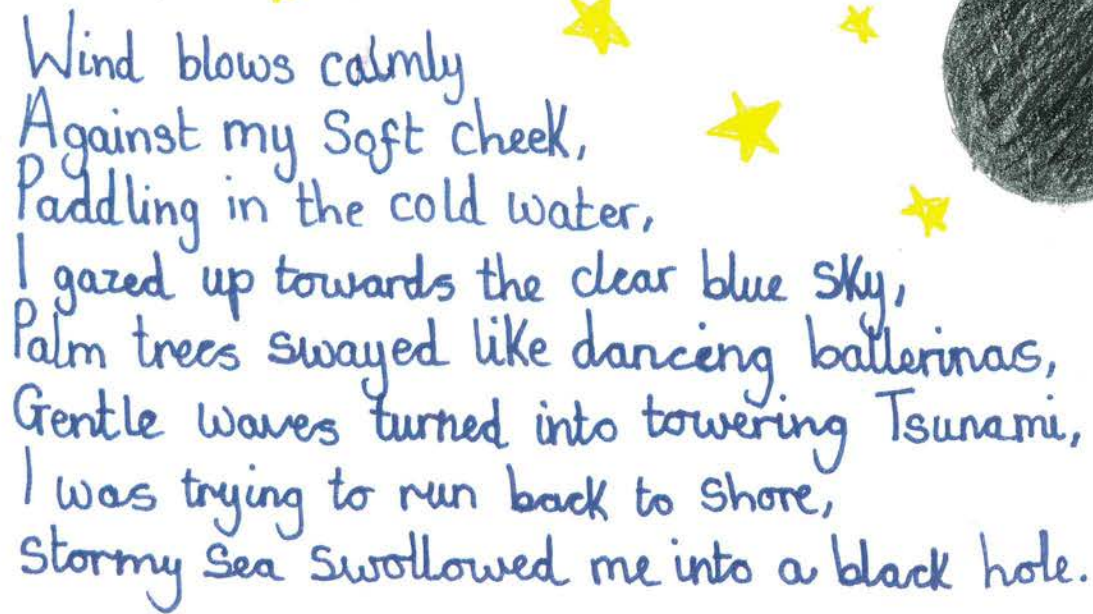 Wind blows calmly
Against my Soft cheek,
Paddling in the cold water,
I gazed up towards the clear blue sky,
Palm trees swayed like dancing ballerinas,
Gentle waves turned into towering Tsunami,
I was trying to run back to shore,
Stormy Sea Swollowed me into a black hole.